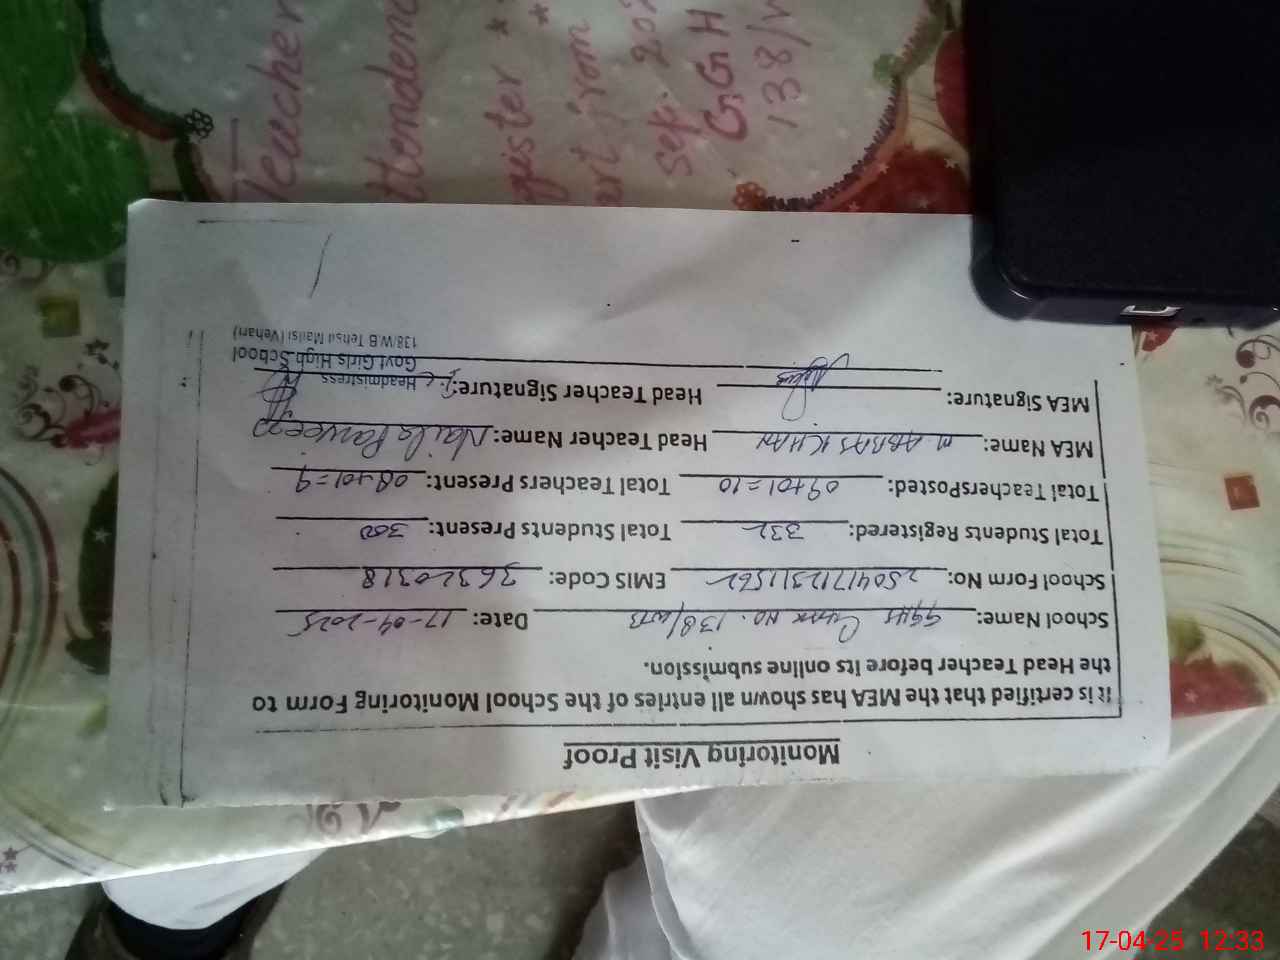 Monitoring Visit Proof
It is certified that the MEA has shown all entries of the School Monitoring Form to
the Head Teacher before its online submission.
School Name: GGHS Chak No. 138/WB Date: 17-04-2025
School Form No: EMIS Code: 36320318
Total Students Registered: 332 Total Students Present: 300
Total TeachersPosted: 09+01=10 Total Teachers Present: 08+01=9
MEA Name: M. ABBAS KHAN Head Teacher Name: Naila Parveen
MEA Signature: Head Teacher Signature:
Headmistress
Govt.Girls High School
138/W.B Tehsil Mailsi (Vehari)
Teacher
ttendenc
gister *
art from
sep 202
GGH
138/W
17-04-25 12:33